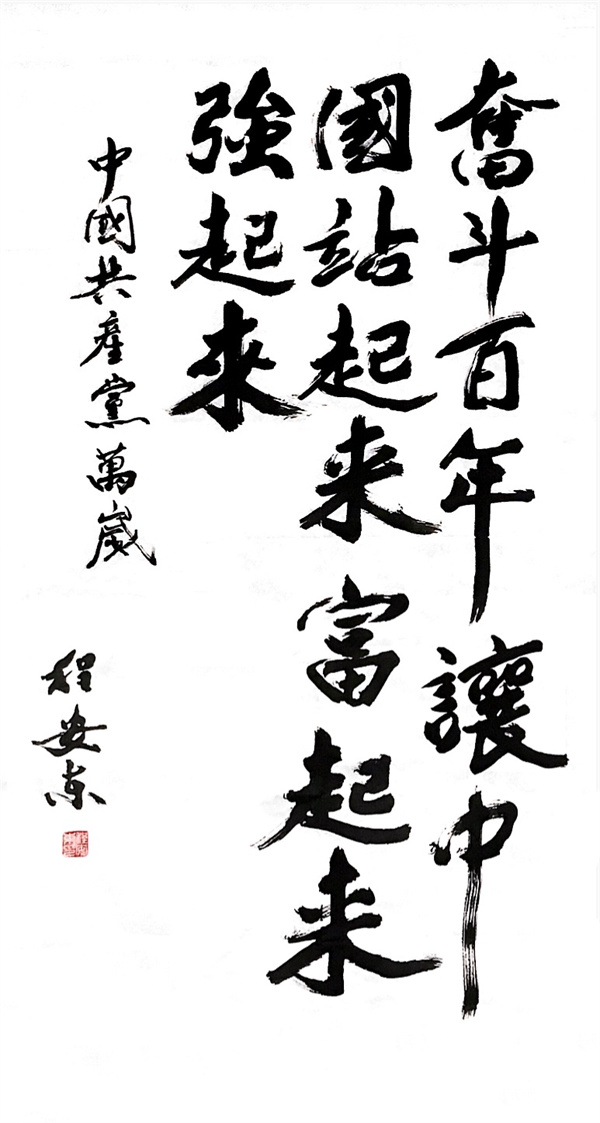 奮斗百年讓中
國站起来富起来
強起來
中國共產黨萬歲
程安东